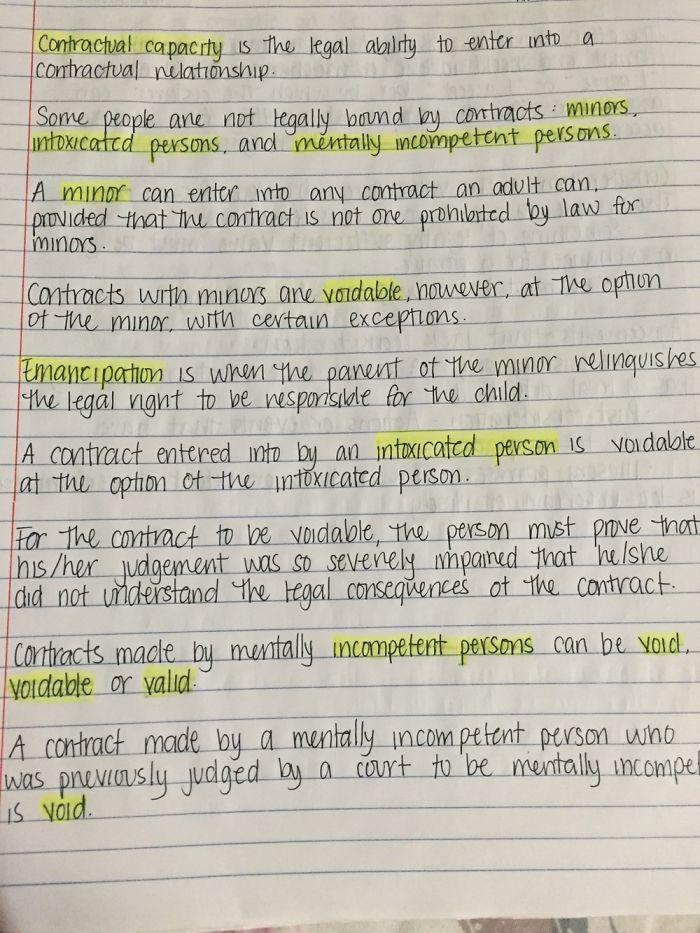 Contractual capacity is the legal ability to enter into a
contractual relationship.
Some people are not legally bound by contracts: minors,
intoxicated persons, and mentally incompetent persons.
A minor can enter into any contract an adult can,
provided that the contract is not one prohibited by law for
minors.
Contracts with minors are voidable, however, at the option
of the minor, with certain exceptions.
Emancipation is when the parent of the minor relinquishes
the legal right to be responsible for the child.
A contract entered into by an intoxicated person is voidable
at the option of the intoxicated person.
For the contract to be voidable, the person must prove that
his/her judgement was so severely impaired that he/she
did not understand the legal consequences of the contract.
Contracts made by mentally incompetent persons can be void,
voidable or valid.
A contract made by a mentally incompetent person who
was previously judged by a court to be mentally incompe
is void.